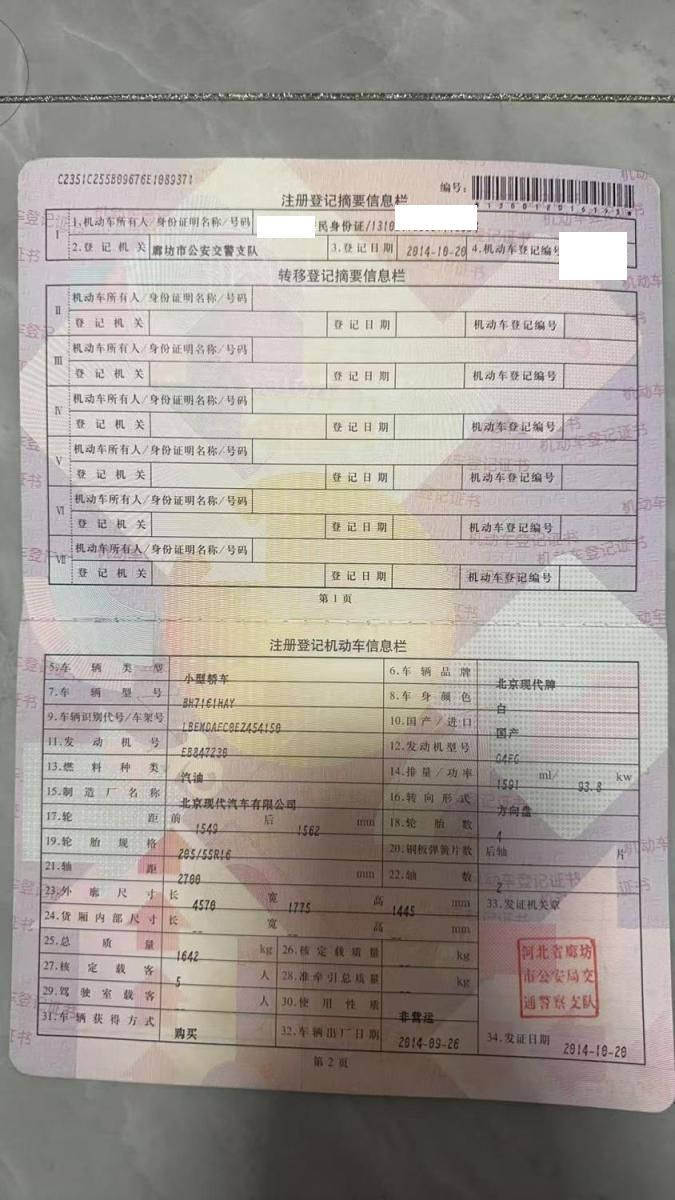 C2351C255B09676E1089371
编号:
注册登记摘要信息栏
I 1.机动车所有人/身份证明名称/号码 民身份证/1310
2.登记机关 廊坊市公安交警支队 3.登记日期 2014-10-20 4.机动车登记编号
转移登记摘要信息栏
II 机动车所有人/身份证明名称/号码
登记机关 登记日期 机动车登记编号
III 机动车所有人/身份证明名称/号码
登记机关 登记日期 机动车登记编号
IV 机动车所有人/身份证明名称/号码
登记机关 登记日期 机动车登记编号
V 机动车所有人/身份证明名称/号码
登记机关 登记日期 机动车登记编号
VI 机动车所有人/身份证明名称/号码
登记机关 登记日期 机动车登记编号
VII 机动车所有人/身份证明名称/号码
登记机关 登记日期 机动车登记编号
第1页
注册登记机动车信息栏
5.车辆类型 小型轿车 6.车辆品牌 北京现代牌
7.车辆型号 BH7161HAY 8.车身颜色 白
9.车辆识别代号/车架号 LBEMDAFC9EZ454150 10.国产/进口 国产
11.发动机号 EB847230 12.发动机型号 G4FG
13.燃料种类 汽油 14.排量/功率 1591 ml/ 93.8 kw
15.制造厂名称 北京现代汽车有限公司 16.转向形式 方向盘
17.轮距 前 1549 后 1562 mm 18.轮胎数 4
19.轮胎规格 205/55R16 20.钢板弹簧片数 后轴 片
21.轴距 2700 mm 22.轴数 2
23.外廓尺寸 长 4570 宽 1775 高 1445 mm 33.发证机关章
24.货厢内部尺寸 长 -- 宽 -- 高 -- mm
25.总质量 1642 kg 26.核定载质量 -- kg
27.核定载客 5 人 28.准牵引总质量 -- kg
29.驾驶室载客 -- 人 30.使用性质 非营运
31.车辆获得方式 购买 32.车辆出厂日期 2014-09-26 34.发证日期 2014-10-20
河北省廊坊
市公安局交
通警察支队
第2页